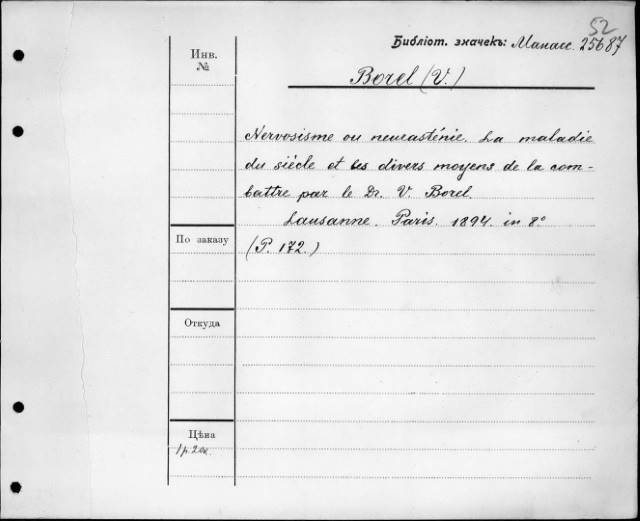 52
Библіот. значекъ: Манасс. 25687
Инв.
№
Borel (V.)
Nervosisme ou neurasténie. La maladie
du siécle et les divers moyens de la com-
battre par le Dr. V. Borel.
Lausanne. Paris. 1894. in 8°
По заказу
(P. 172.)
Откуда
Цѣна
1 р. 20к.